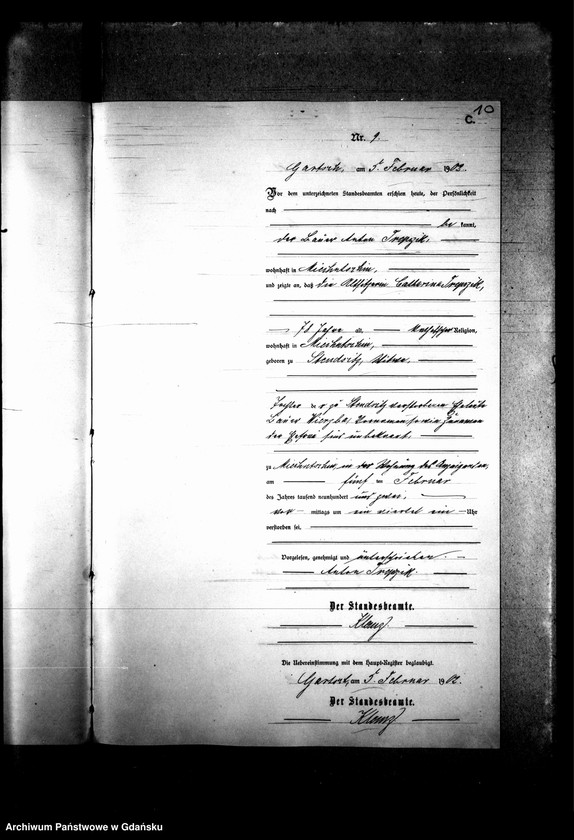 10
C.
Nr. 9.
am 5t Februar 1902.
Vor dem unterzeichneten Standesbeamten erschien heute, der Persönlichkeit
nach
be kannt,
der Bauer Anton Trepzik,
wohnhaft in
und zeigte an, daß die Altsitzerin Catharina Trepzik,
78 Jahre alt, katholischer Religion,
wohnhaft in
geboren zu Stendsitz, Witwe,
Tochter der zu Stendsitz verstorbenen Eheleute
Bauer Vornamen sowie Zunamen
der Ehefrau sind unbekannt,
zu in der Wohnung des Anzeigenden,
am fünf ten Februar
des Jahres tausend neunhundert und zwei,
vor mittags um ein viertel ein Uhr
verstorben sei.
Vorgelesen, genehmigt und unterschrieben
Anton Trepzik.
Der Standesbeamte.
Klanz
Die Uebereinstimmung mit dem Haupt-Register beglaubigt.
am 5t Februar 1902.
Der Standesbeamte.
Klanz
Archiwum Państwowe w Gdańsku